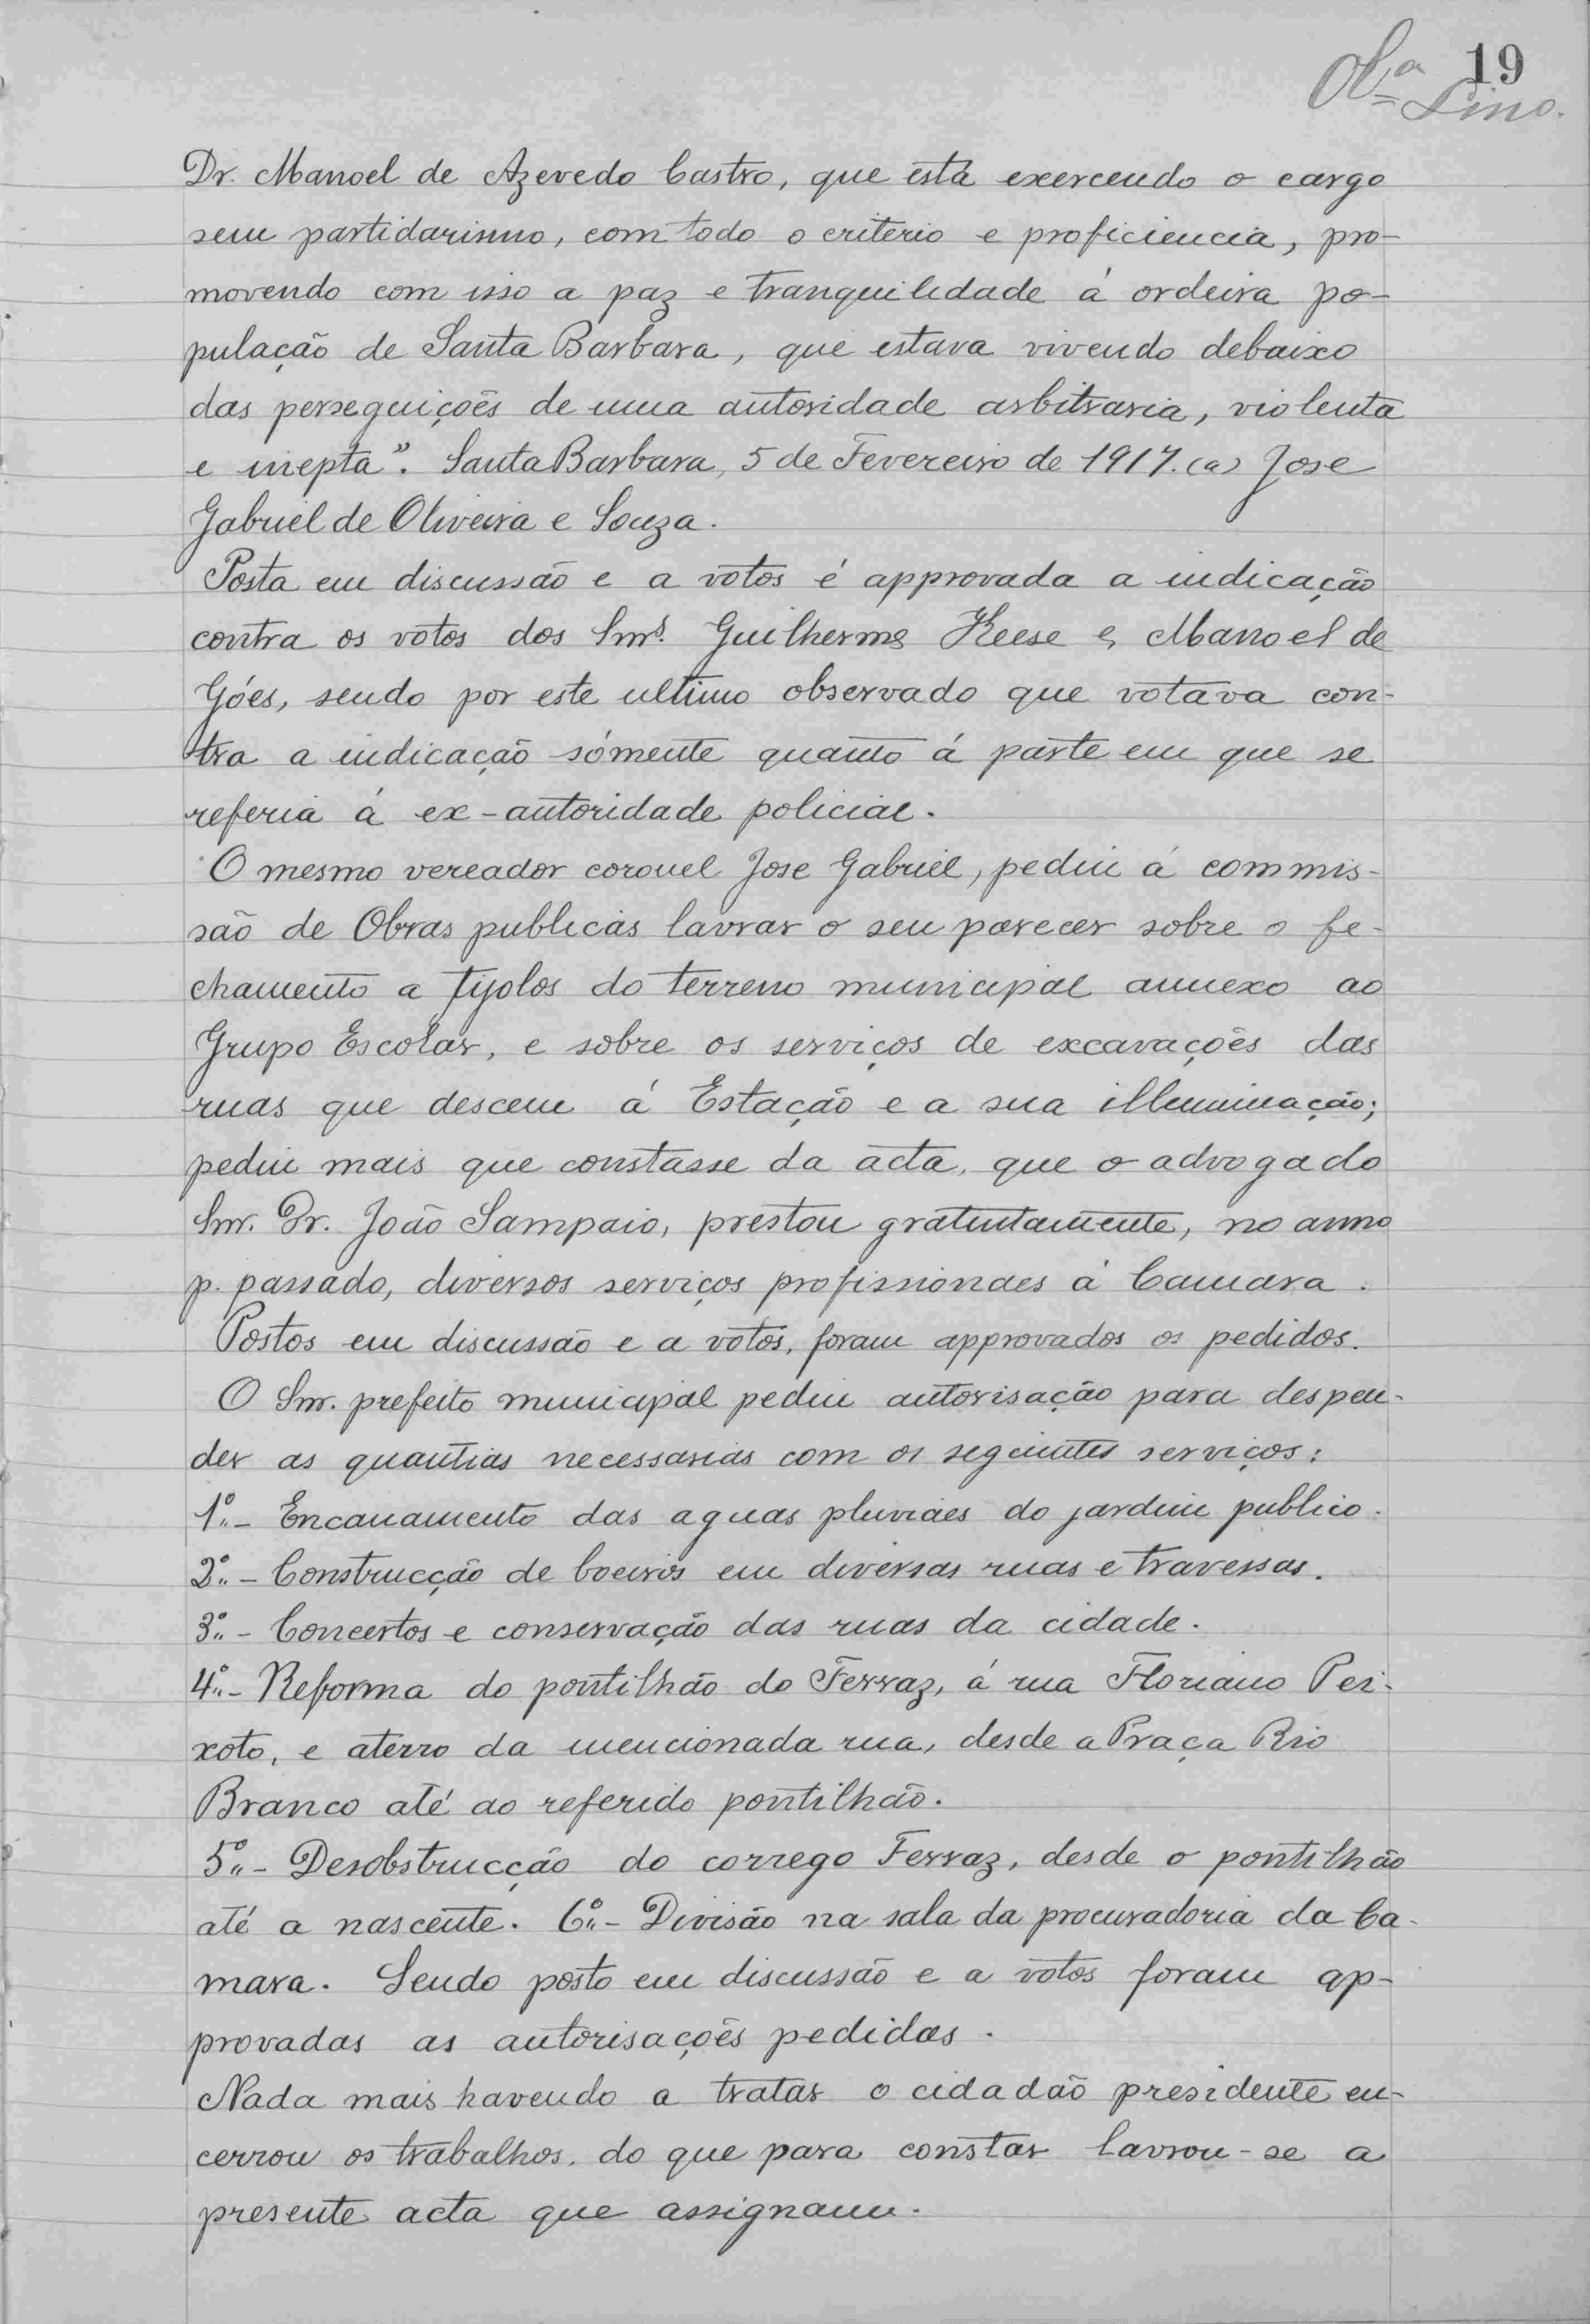 19
Olª Lino.
Dr. Manoel de Azevedo Castro, que está exercendo o cargo
sem partidarismo, com todo o criterio e proficiencia, pro-
movendo com isso a paz e tranquilidade á ordeira po-
pulação de Santa Barbara, que estava vivendo debaixo
das perseguições de uma autoridade arbitraria, violenta
e inepta". Santa Barbara, 5 de Fevereiro de 1917. (a) Jose
Gabriel de Oliveira e Souza.
Posta em discussão e a votos é approvada a indicação
contra os votos dos Snrs. Guilherme Keese e Manoel de
Góes, sendo por este ultimo observado que votava con-
tra a indicação sómente quanto á parte em que se
referia á ex-autoridade policial.
O mesmo vereador coronel Jose Gabriel, pediu á commis-
são de Obras publicas lavrar o seu parecer sobre o fe-
chamento a tijolos do terreno municipal annexo ao
Grupo Escolar, e sobre os serviços de excavações das
ruas que descem á Estação e a sua illuminação;
pediu mais que constasse da acta, que o advogado
Snr. Dr. João Sampaio, prestou gratuitamente, no anno
p. passado, diversos serviços profissionaes á Camara.
Postos em discussão e a votos, foram approvados os pedidos.
O Snr. prefeito municipal pediu autorisação para despen-
der as quantias necessarias com os seguintes serviços:
1º- Encanamento das aguas pluviaes do jardim publico.
2º- Construcção de boeiros em diversas ruas e travessas.
3º- Concertos e conservação das ruas da cidade.
4º- Reforma do pontilhão do Ferraz, á rua Floriano Pei-
xoto, e aterro da mencionada rua, desde a Praça Rio
Branco até ao referido pontilhão.
5º- Desobstrucção do corrego Ferraz, desde o pontilhão
até a nascente. 6º- Divisão na sala da procuradoria da Ca-
mara. Sendo posto em discussão e a votos foram ap-
provadas as autorisações pedidas.
Nada mais havendo a tratar o cidadão presidente en-
cerrou os trabalhos, do que para constar lavrou-se a
presente acta que assignam.